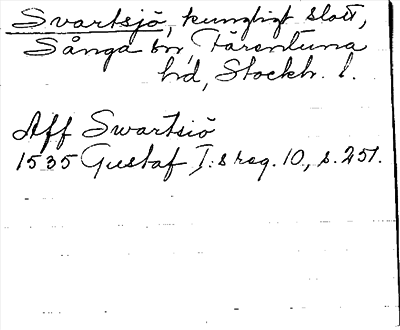 Svartsjö, kungligt slott,
Sånga sn, Färentuna
hd, Stockh. l.
Aff Swartsiö
1535 Gustaf I:s reg. 10, s. 251.